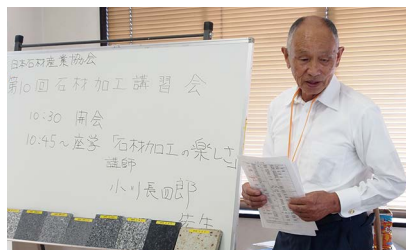 日本石材産業協会
第10回石材加工講習会
10:30 開会
10:45～座学「石材加工の楽しさ」
講師
小川長四郎
先生